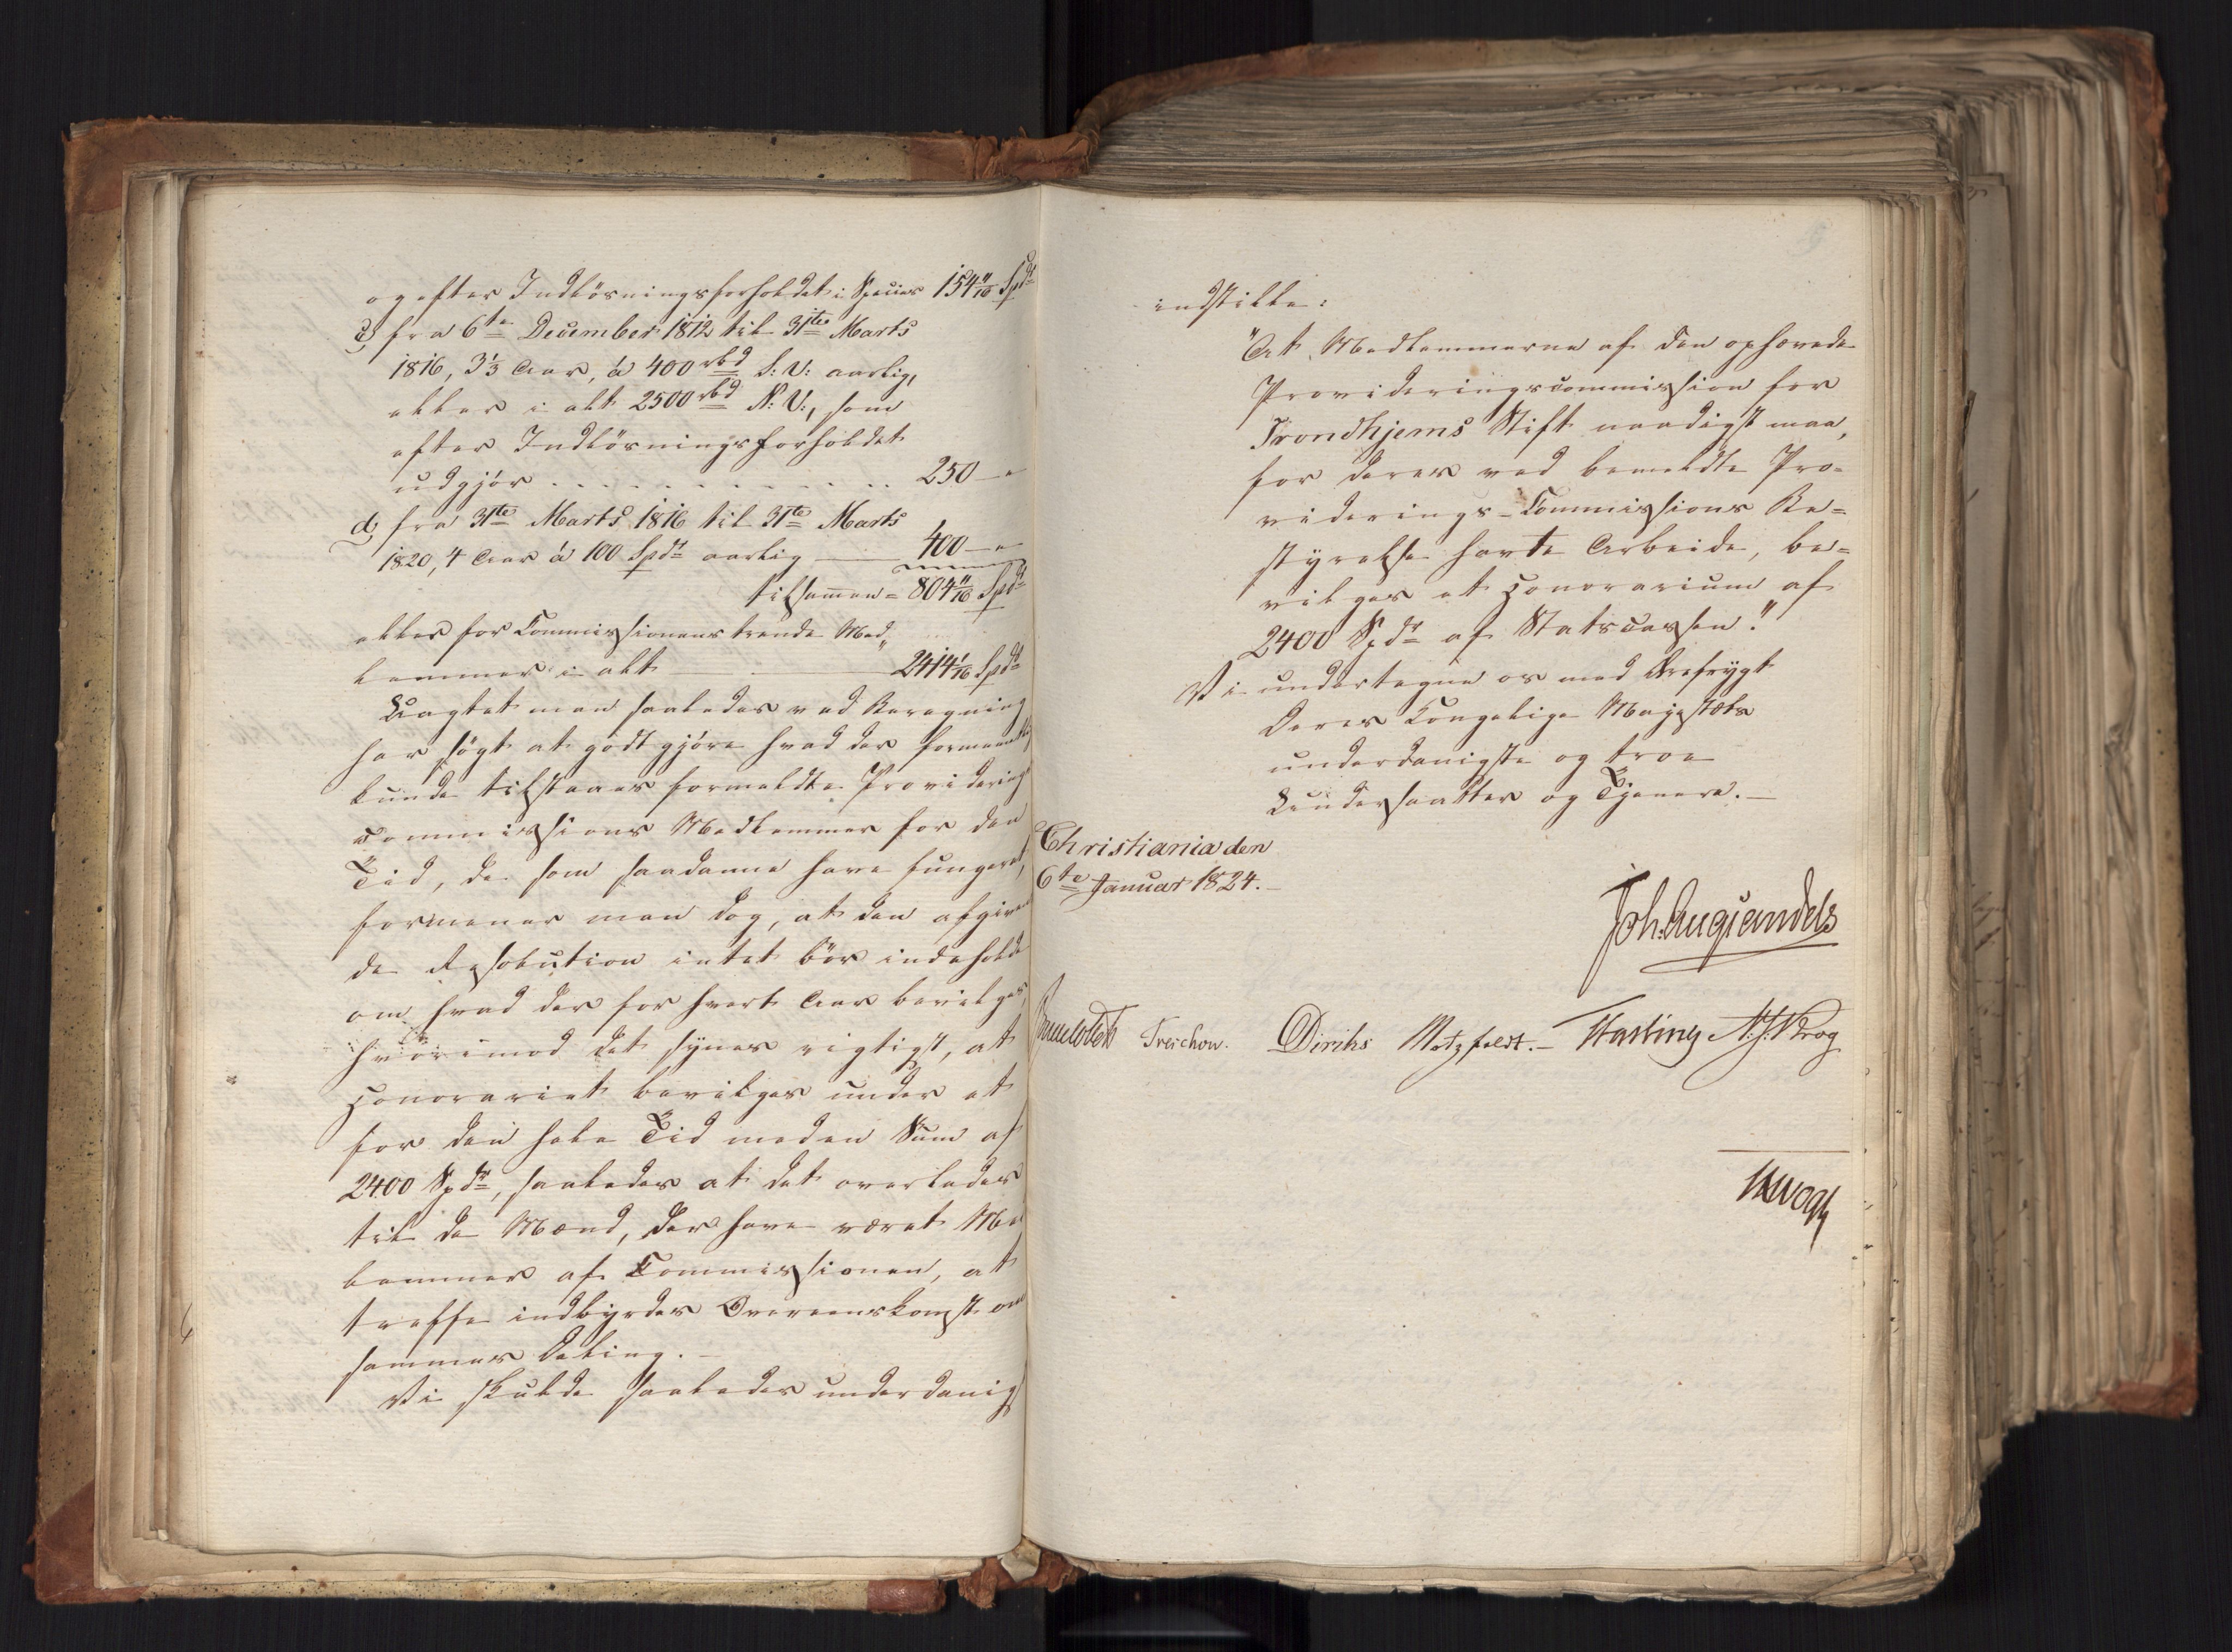 og efter Indløsningsforholdet i Species 154 11/16 Spd
c) fra 6te December 1812 til 31te Marts
1816, 3 1/3 Aar, á 400 rbd S: V: aarlig,
eller i alt 2500 rbd N: V:, som
efter Indløsningsforholdet
udgjør . . . . . . . . . . . . . 250 — "
d, fra 31te Marts 1816 til 31te Marts
1820, 4 Aar á 100 Spdr aarlig — 400 — "
tilsammen = 804 11/16 Spdr
eller for Commissionens trende Med„
lemmer i alt — 2414 1/16 Spdr
Uagtet man saaledes ved Beregning
har søgt at godtgjøre hvad der formeentlig
kunde tilstaaes formeldte Providerings
commissions Medlemmer for den
Tid, de som saadanne have fungeret,
formener man dog, at den afgiven
de Resolution intet bør indeholde
om hvad der for hvert Aar bevilges,
hvorimod det synes rigtigst, at
Honorariet bevilges under et
for den hele Tid med en Sum af
2400 Spdr, saaledes at det overlades
til de Mænd, der have været Med
lemmer af Commissionen, at
treffe indbyrdes Overeenskomst om
sammes Deling. —
Vi skulde saaledes underdanigst
indstille:
"At Medlemmerne af den ophævede
Provideringscommission for
Trondhjems Stift naadigst maa,
for deres ved bemeldte Pro=
viderings-Commissions Be=
styrelse havte Arbeide, be=
vilges et Honorarium af
2400 Spdr af Statscassen."
Vi undertegne os med Ærefrygt
Deres Kongelige Majestæts
underdanigste og troe
Undersaatter og Tjenere. —
Christiania den
6te Januar 1824. —
Joh. Aug. Sandels
Sommerfeldt Treschow. Diriks Motzfeldt. — Fasting N. J. Krog
Vogt